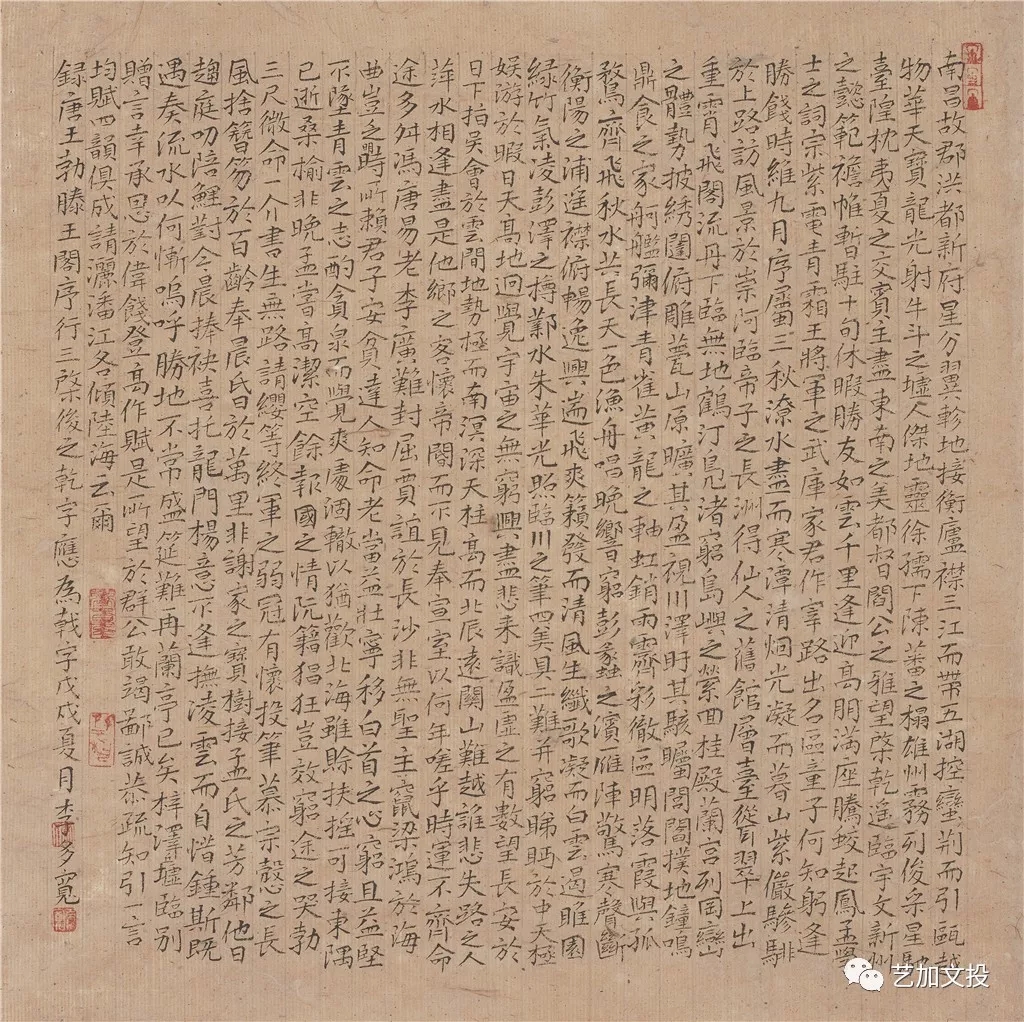 南昌故郡洪都新府星分翼軫地接衡廬襟三江而帶五湖控蠻荊而引甌越
物華天寶龍光射牛斗之墟人傑地靈徐孺下陳蕃之榻雄州霧列俊采星馳
臺隍枕夷夏之交賓主盡東南之美都督閻公之雅望棨乾遙臨宇文新州
之懿範襜帷暫駐十旬休暇勝友如雲千里逢迎高朋滿座騰蛟起鳳孟學
士之詞宗紫電青霜王將軍之武庫家君作宰路出名區童子何知躬逢
勝餞時維九月序屬三秋潦水盡而寒潭清烟光凝而暮山紫儼驂騑
於上路訪風景於崇阿臨帝子之長洲得仙人之舊館層臺聳翠上出
重霄飛閣流丹下臨無地鶴汀鳧渚窮島嶼之縈回桂殿蘭宮列岡巒
之體勢披綉闥俯雕甍山原曠其盈視川澤盱其駭矚閭閻撲地鐘鳴
鼎食之家舸艦彌津青雀黃龍之軸虹銷雨霽彩徹區明落霞與孤
鶩齊飛秋水共長天一色漁舟唱晚響窮彭蠡之濱雁陣驚寒聲斷
衡陽之浦遙襟俯暢逸興遄飛爽籟發而清風生纖歌凝而白雲遏睢園
綠竹氣凌彭澤之樽鄴水朱華光照臨川之筆四美具二難并窮睇眄於中天極
娛游於暇日天高地迥覺宇宙之無窮興盡悲來識盈虛之有數望長安於
日下指吳會於雲間地勢極而南溟深天柱高而北辰遠關山難越誰悲失路之人
萍水相逢盡是他鄉之客懷帝閽而不見奉宣室以何年嗟乎時運不齊命
途多舛馮唐易老李廣難封屈賈誼於長沙非無聖主竄梁鴻於海
曲豈乏時所賴君子安貧達人知命老當益壯寧移白首之心窮且益堅
不墜青雲之志酌貪泉而覺爽處涸轍以猶歡北海雖賒扶搖可接東隅
已逝桑榆非晚孟嘗高潔空餘報國之情阮籍猖狂豈效窮途之哭勃
三尺微命一介書生無路請纓等終軍之弱冠有懷投筆慕宗慤之長
風捨簪笏於百齡奉晨昏於萬里非謝家之寶樹接孟氏之芳鄰他日
趨庭叨陪鯉對今晨捧袂喜托龍門楊意不逢撫凌雲而自惜鍾斯既
遇奏流水以何慚嗚呼勝地不常盛筵難再蘭亭已矣梓澤墟臨別
贈言幸承恩於偉餞登高作賦是所望於群公敢竭鄙誠恭疏知引一言
均賦四韻俱成請灑潘江各傾陸海云爾
錄唐王勃滕王閣序行三棨後之乾字應為戟字戊戌夏月李多寬
艺加文投